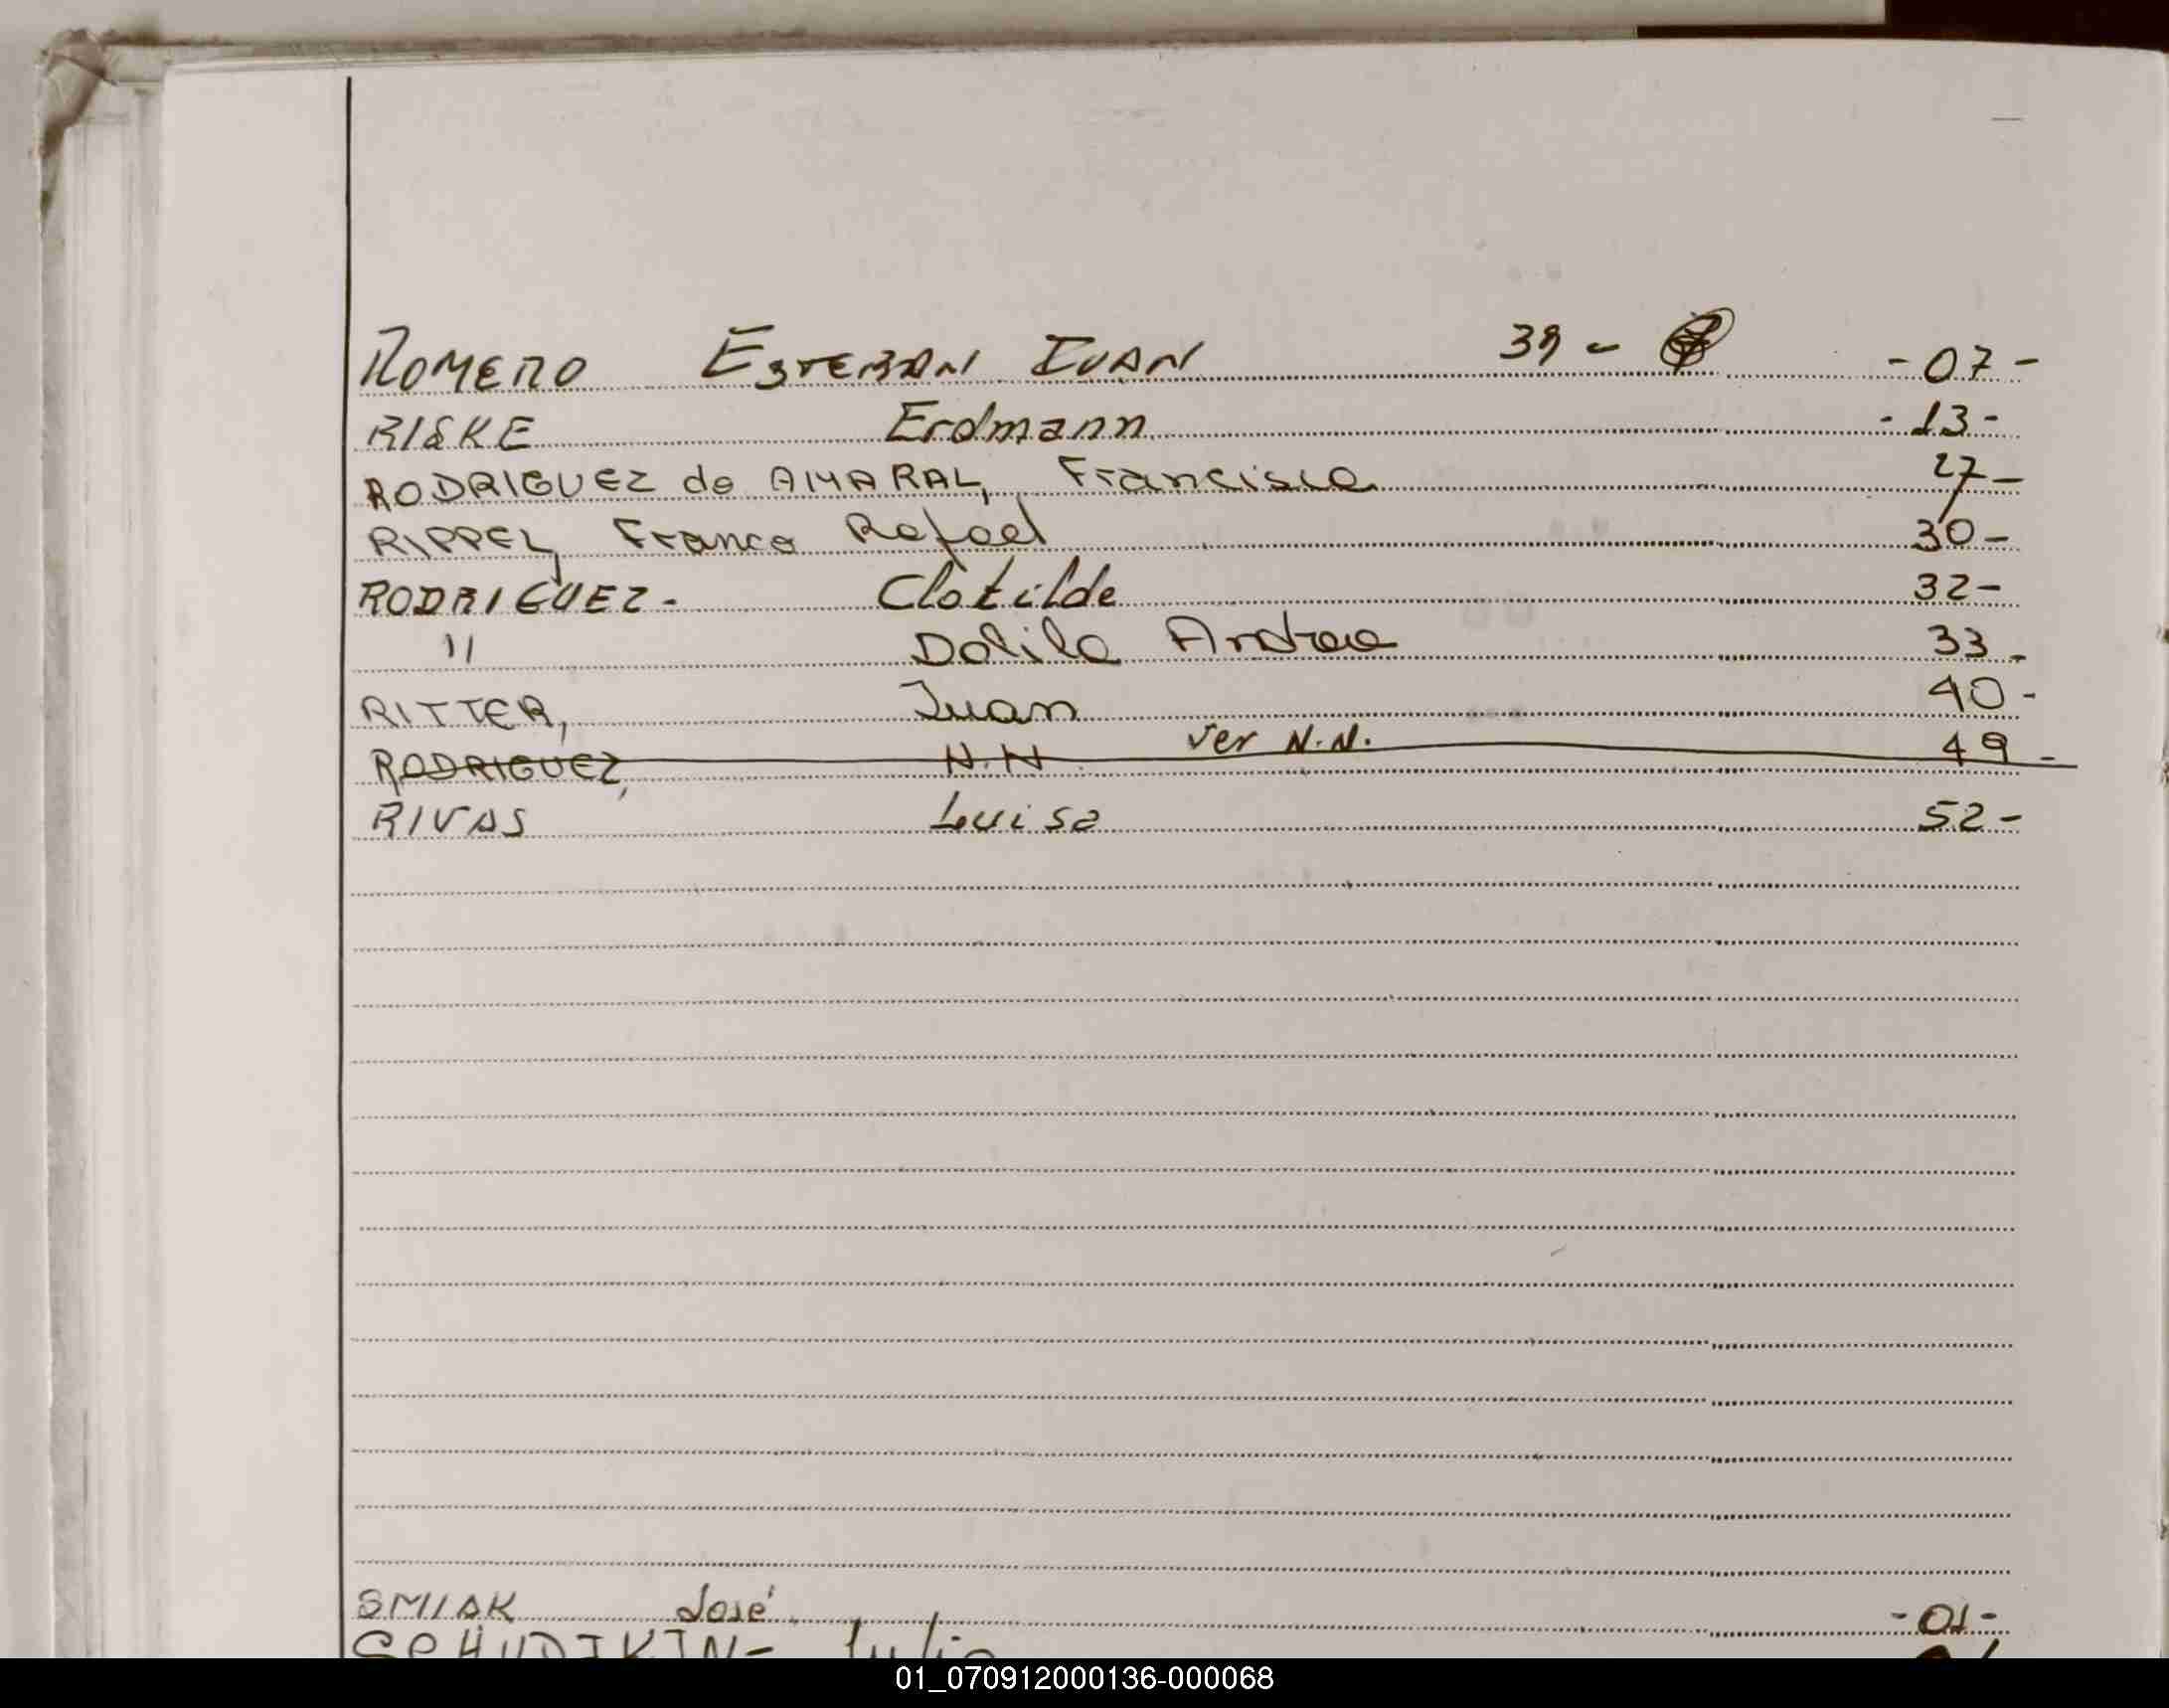 ROMERO ESTEBAN IVAN 39 - - 07 -
RISKE Erdmann - 13 -
RODRIGUEZ de AMARAL, Francisca 27 -
RIPPEL, Franco Rafael 30 -
RODRIGUEZ - Clotilde 32 -
" Dalila Andrea 33 -
RITTER, Juan 40 -
RODRIGUEZ, N.N ver N.N. 49 -
RIVAS Luisa 52 -
SMIAK José - 01 -
01_070912000136-000068